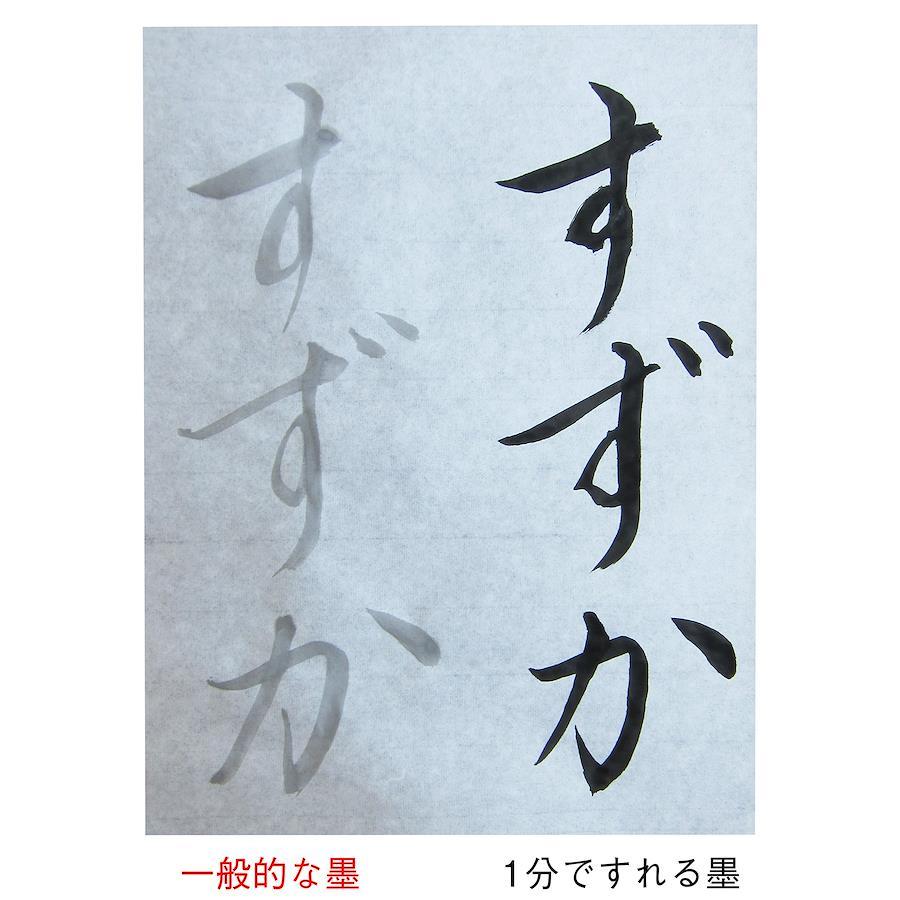 すずか
すずか
一般的な墨
1分ですれる墨